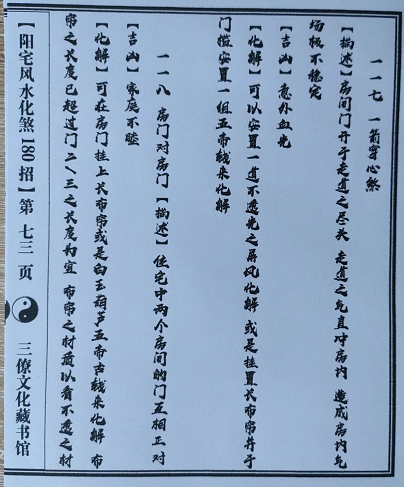 一一七 一箭穿心煞
【描述】房间门开于走道之尽头 走道之气直冲房内 造成房内气
场极不稳定
【吉凶】意外血光
【化解】可以安置一道不透光之屏风化解 或是挂置长布帘并于
门槛安置一组五帝钱来化解
一一八 房门对房门 【描述】住宅中两个房间的门互相正对
【吉凶】家庭不睦
【化解】可在房门挂上长布帘或是白玉葫芦五帝古钱来化解 布
帘之长度已超过门二\三之长度为宜 布帘之材质以看不透之材
【阳宅风水化煞】【180招】第 七三 页 三僚文化藏书馆